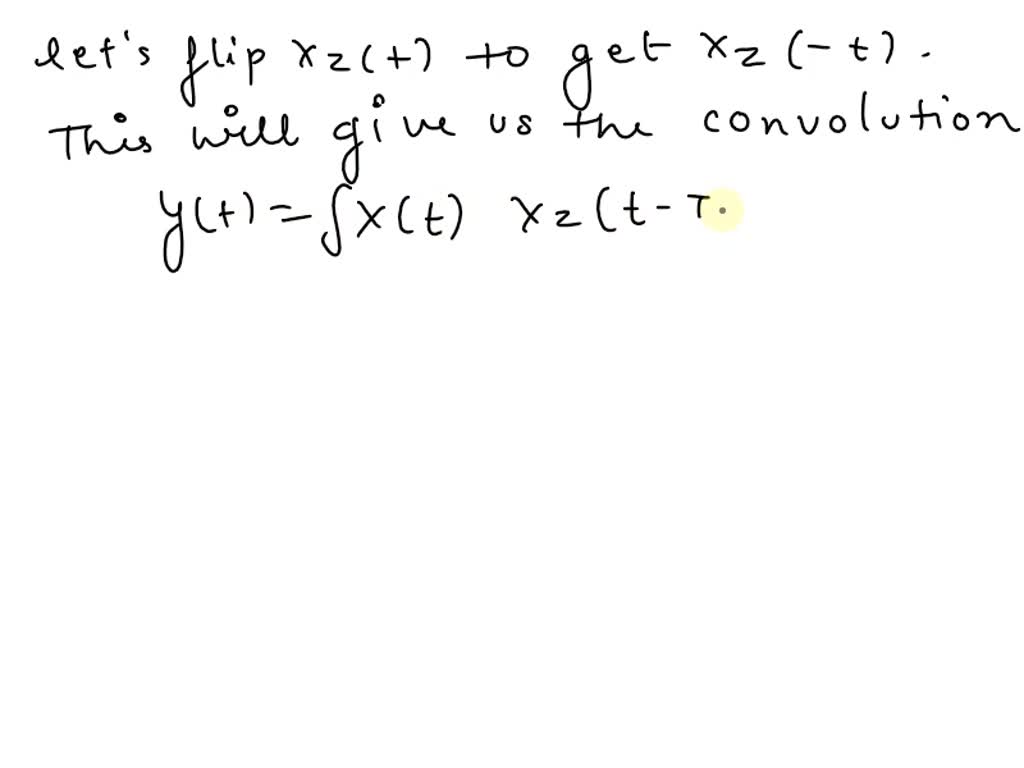 let's flip xz(t) to get xz(-t).
This will give us the convolution
y(t)=∫x(t) xz(t-τ